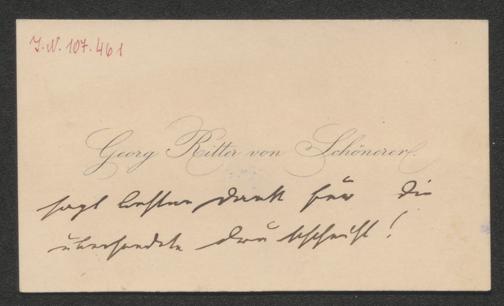 I.N. 107.461
Georg Ritter von Schönerer.
sagt besten Dank für die
übersendete Druckschrift!